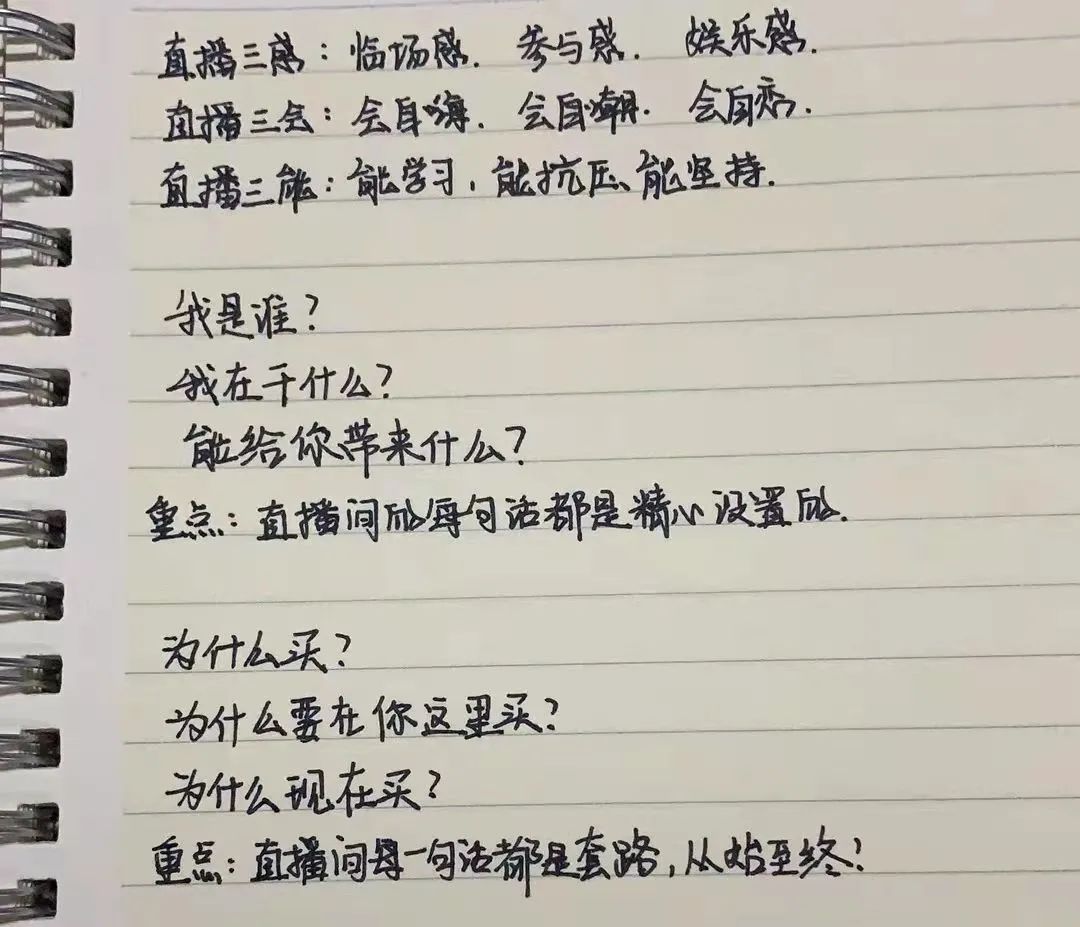 直播三感：临场感. 参与感. 娱乐感.
直播三会：会自嗨. 会自嘲. 会自秀.
直播三能：能学习, 能抗压、能坚持.
我是谁？
我在干什么？
能给你带来什么？
重点：直播间的每句话都是精心设置的.
为什么买？
为什么要在你这里买？
为什么现在买？
重点：直播间每一句话都是套路, 从始至终！